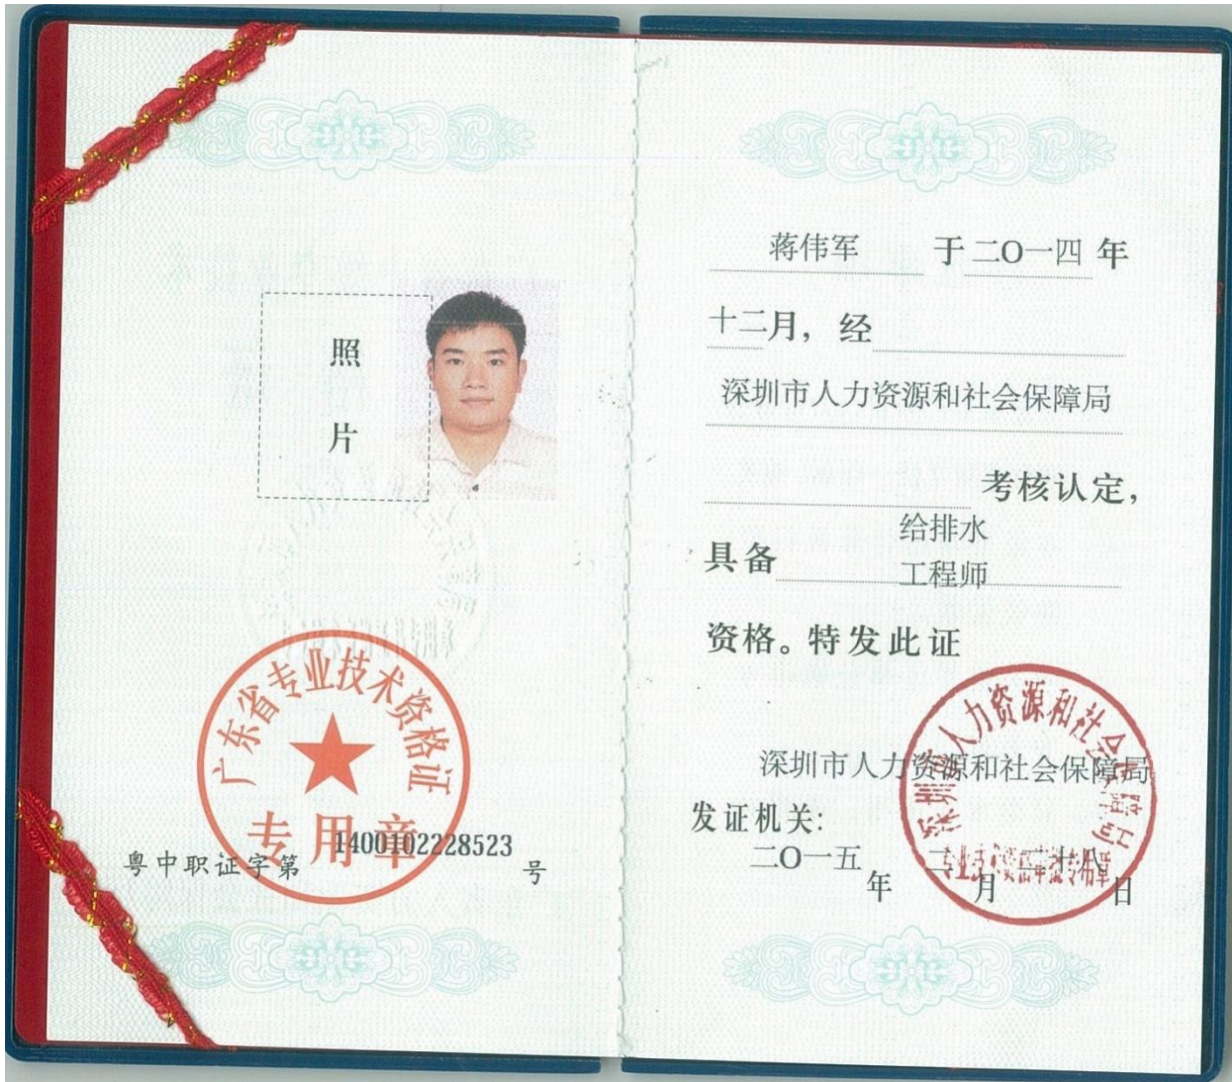 照
片
广东省专业技术资格证
专用章
粤中职证字第1400102228523号
蒋伟军 于二O一四年
十二月，经
深圳市人力资源和社会保障局
考核认定，
给排水
具备
工程师
资格。特发此证
深圳市人力资源和社会保障局
发证机关：
二O一五年二月二十八日
深圳市人力资源和社会保障局